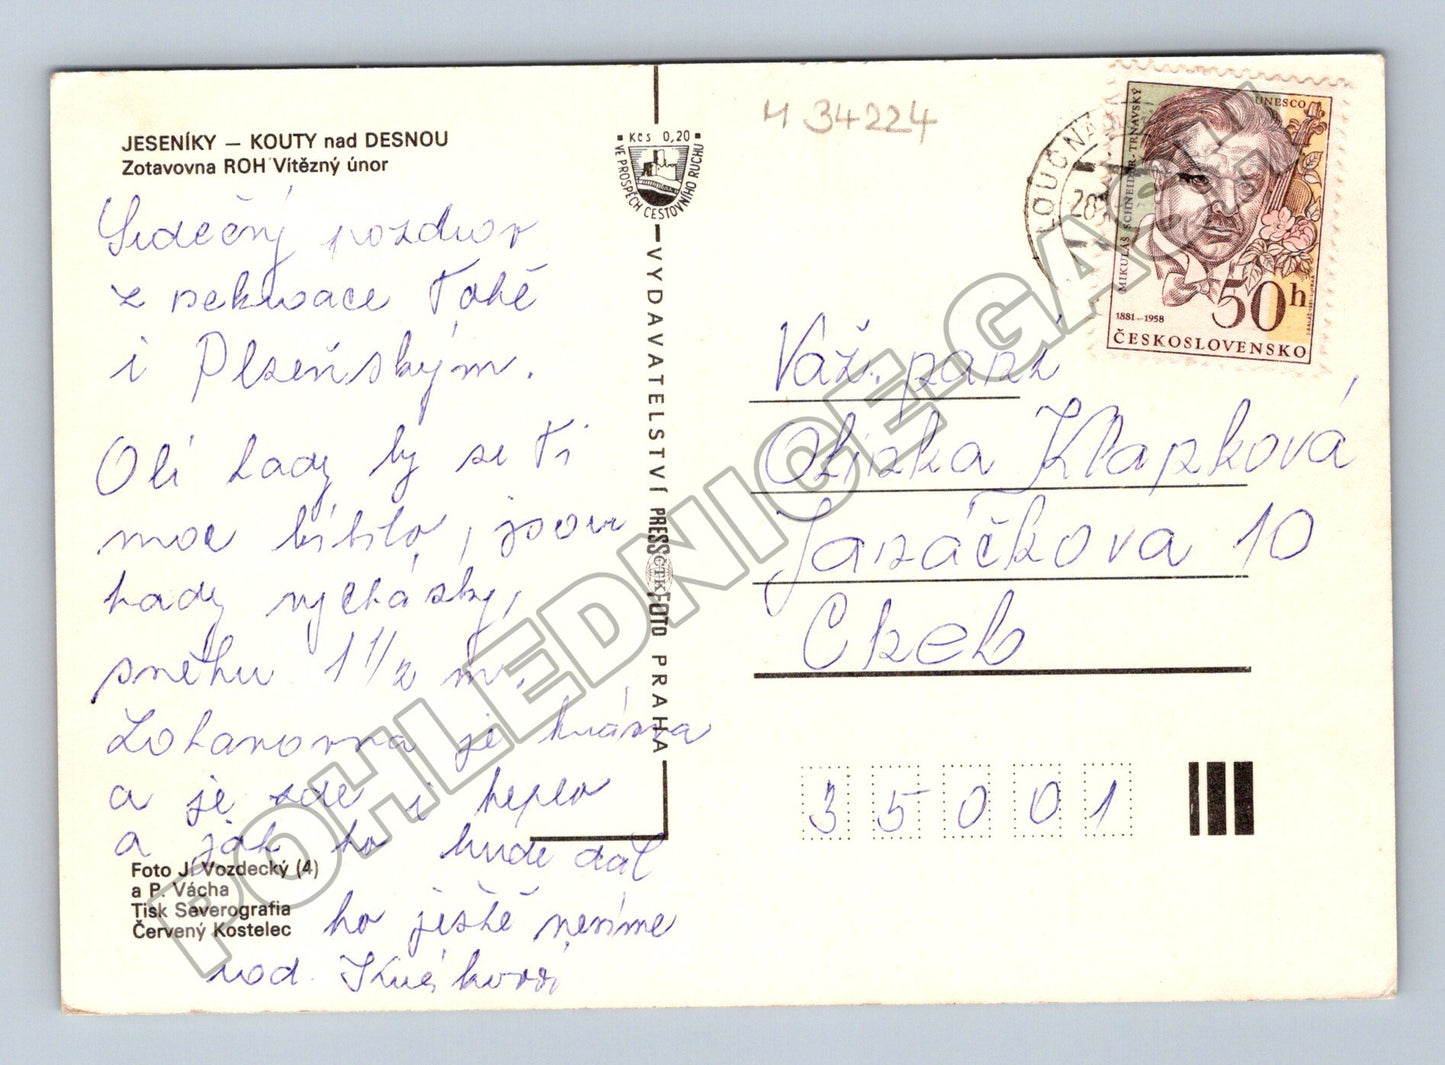 JESENÍKY – KOUTY nad DESNOU
Zotavovna ROH Vítězný únor
Srdečný pozdrav
z rekreace Tobě
i Plzeňským.
Olí tady by se Ti
moc líbilo, jsou
tady vycházky,
sněhu 1 1/2 m.
Zotavovna je krásná
a je zde i teplo
a jak to bude dál
to ještě nevíme
rod.
Foto J. Vozdecký (4)
a P. Vácha
Tisk Severografia
Červený Kostelec
Kčs 0,20
VE PROSPĚCH CESTOVNÍHO RUCHU
VYDAVATELSTVÍ PRESSFOTO PRAHA
ČTK
M 34224
LOUČNÁ
UNESCO
MIKULÁŠ SCHNEIDER-TRNAVSKÝ
1881–1958
50h
ČESKOSLOVENSKO
Váž. paní
Olinka Klapková
Janáčkova 10
Cheb
35001
POHLEDNICE-GALERIE